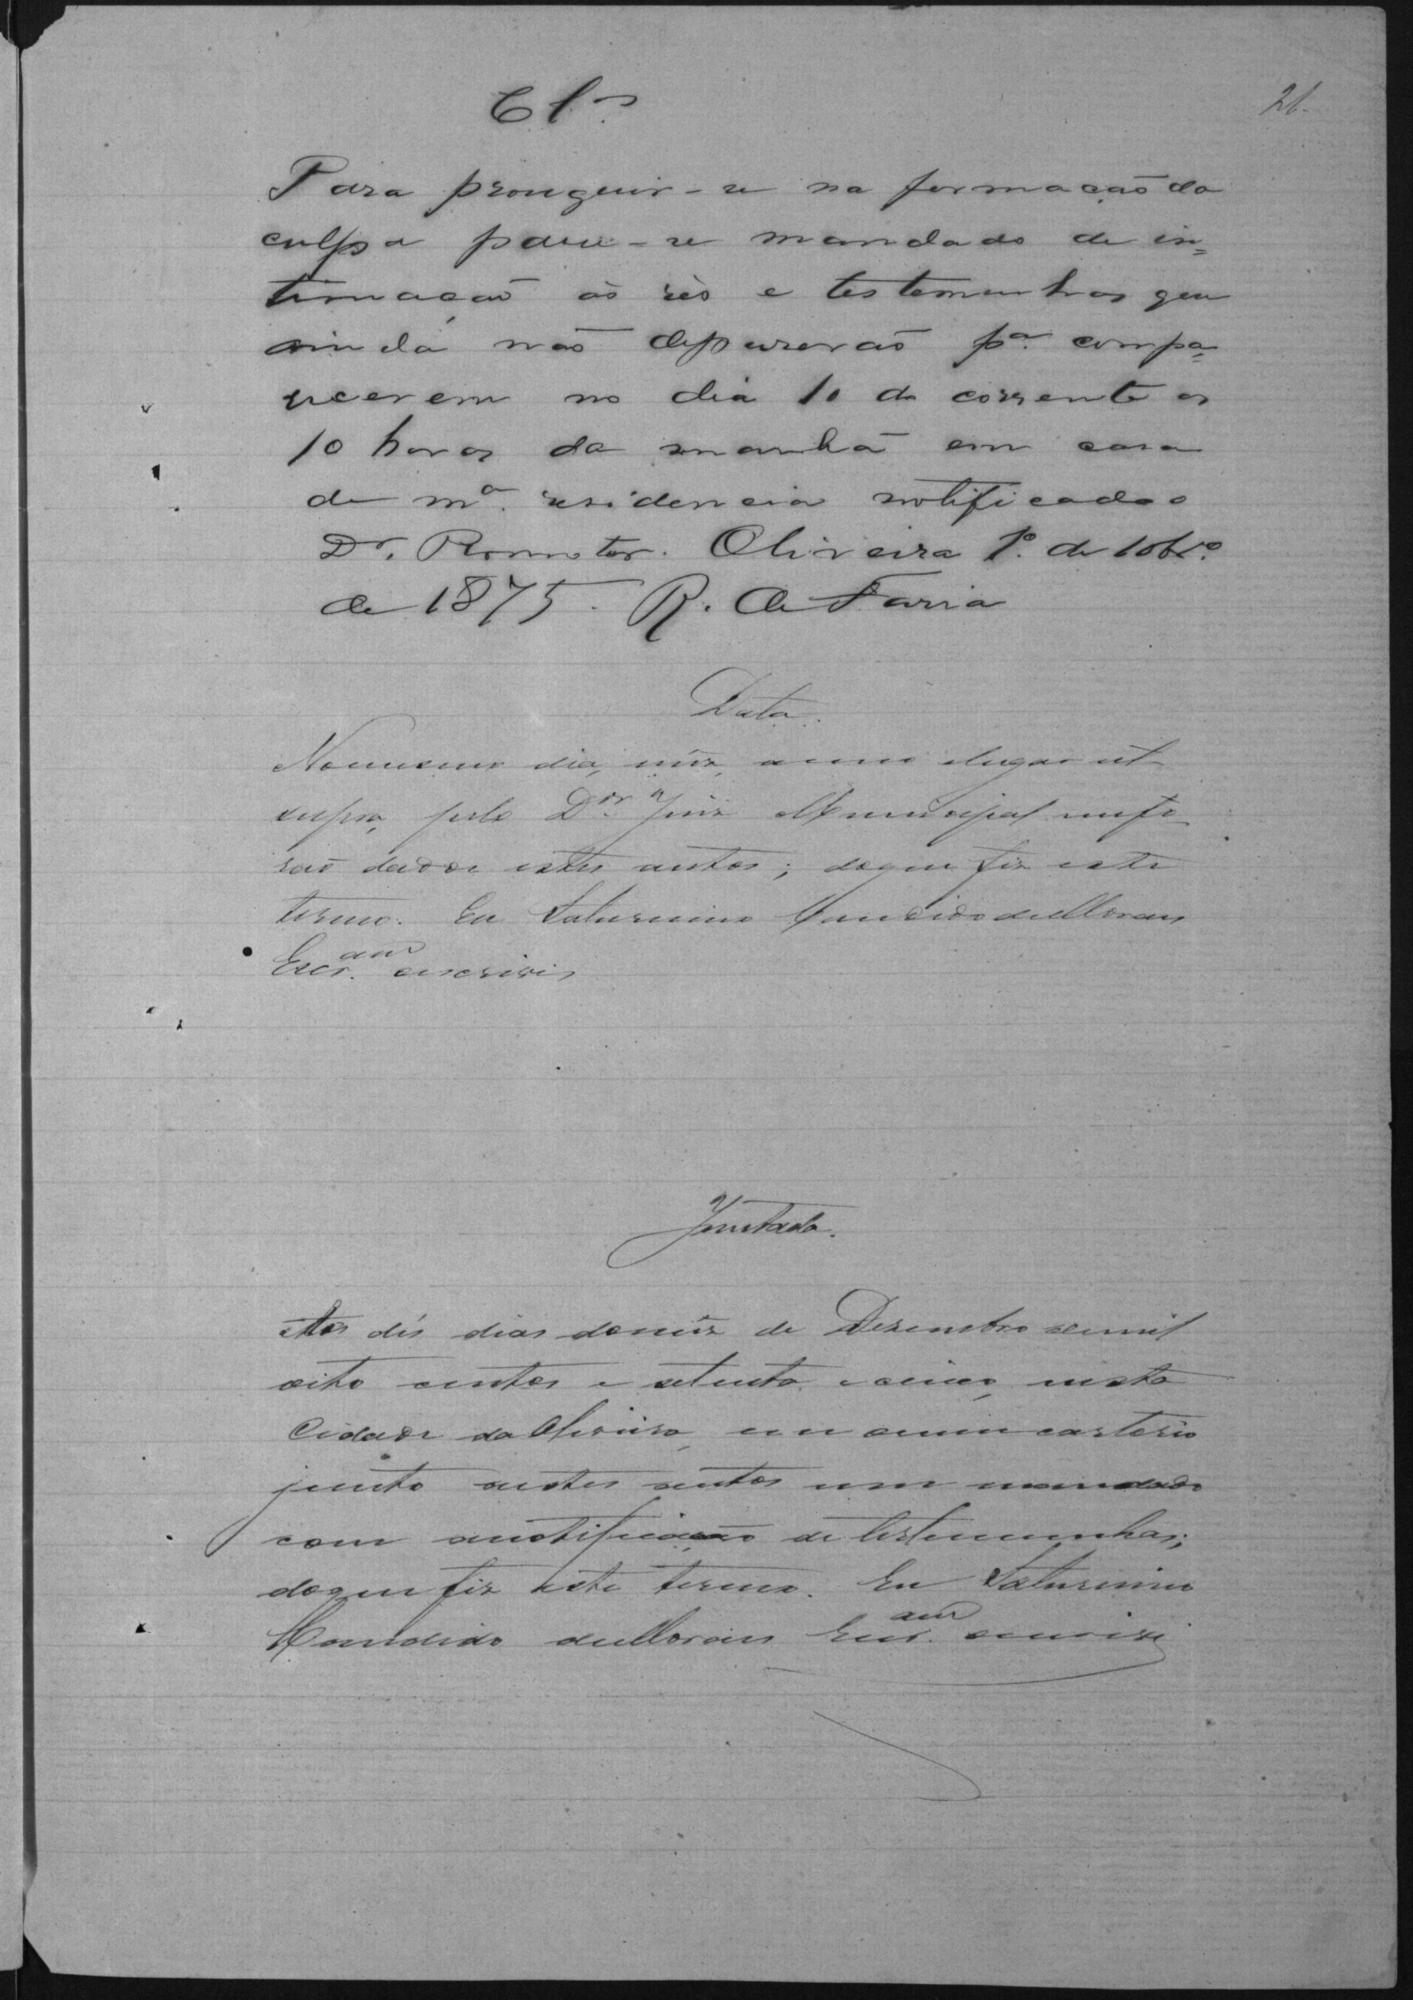 Cls
21.
Para proseguir-se na formação da
culpa passe-se mandado de in=
timação ao réo e testemunhas que
ainda não depuserão pª. compa=
recerem no dia 10 do corrente as
10 horas da manhã em casa
de mª. residencia notificado o
Dr. Promotor. Oliveira 1º. de 10brº.
de 1875. R. de Faria
Data.
No mesmo dia, mez, anno elugar ut
supra, pelo Dor. Juiz Municipal me fo
rão dados estes autos; doque fiz este
termo. Eu Saturnino Candido de Moraes
Escr.am oescrivi
Juntada.
Aos dés dias domez de Dezembro de mil
oito centos e setenta e cinco, nesta
Cidade da Oliveira, em omeu cartorio
junto aestes autos um mandado
com anotificação de testemunhas;
doque fiz este termo. Eu Saturnino
Candido de Moraes Escr.am oescrivi